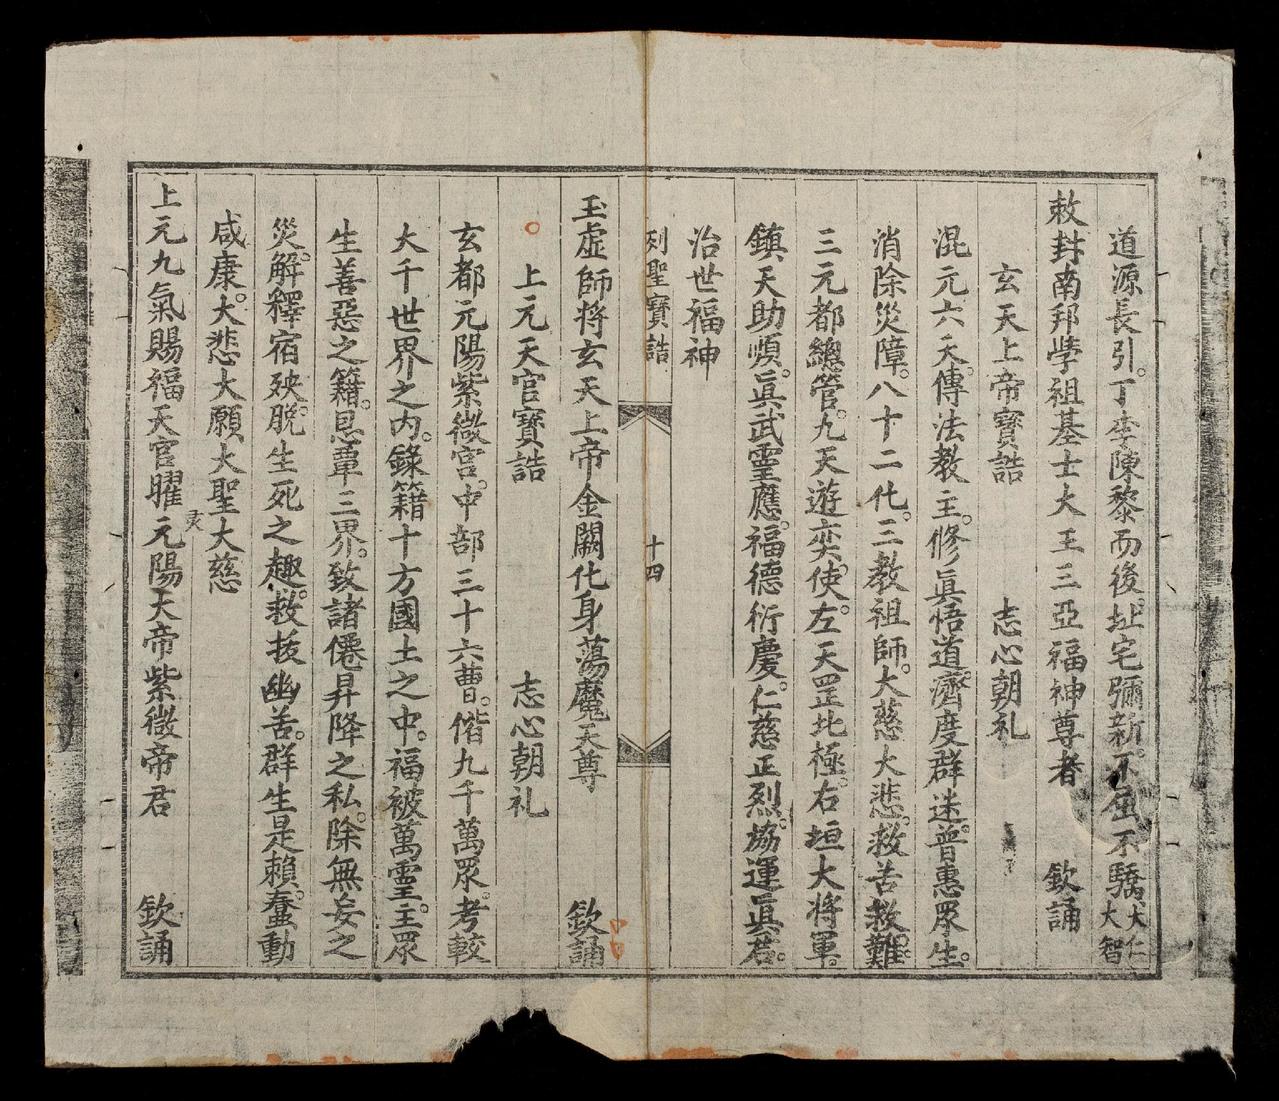 道源長引。丁李陳黎而後。址宅彌新。不屈不驕大仁大智
敕封南邦學祖基士大王三亞福神尊者 欽誦
玄天上帝寶誥 志心朝礼
混元六天。傳法教主。修眞悟道。濟度群迷。普惠眾生。
消除災障。八十二化。三教祖師。大慈大悲。救苦救難。
三元都總管。九天遊奕使。左天罡北極。右垣大將軍。
鎮天助順。眞武霊應。福德衍慶。仁慈正烈。協運眞君。
治世福神
列聖寶誥 十四
玉虛師將玄天上帝金闕化身蕩魔天尊 欽誦
上元天官寶誥 志心朝礼
玄都元陽紫微宮。中部三十六曹。偕九千萬眾。考較
大千世界之内。錄籍十方國土之中。福被萬霊。主眾
生善惡之籍。恩覃三界。致諸僊昇降之私。除無妄之
災。解釋宿殃。脫生死之趣。救拔幽苦。群生是賴。蠢動
咸康。大悲大願大聖大慈
灵
上元九氣賜福天官曜元陽天帝紫微帝君 欽誦